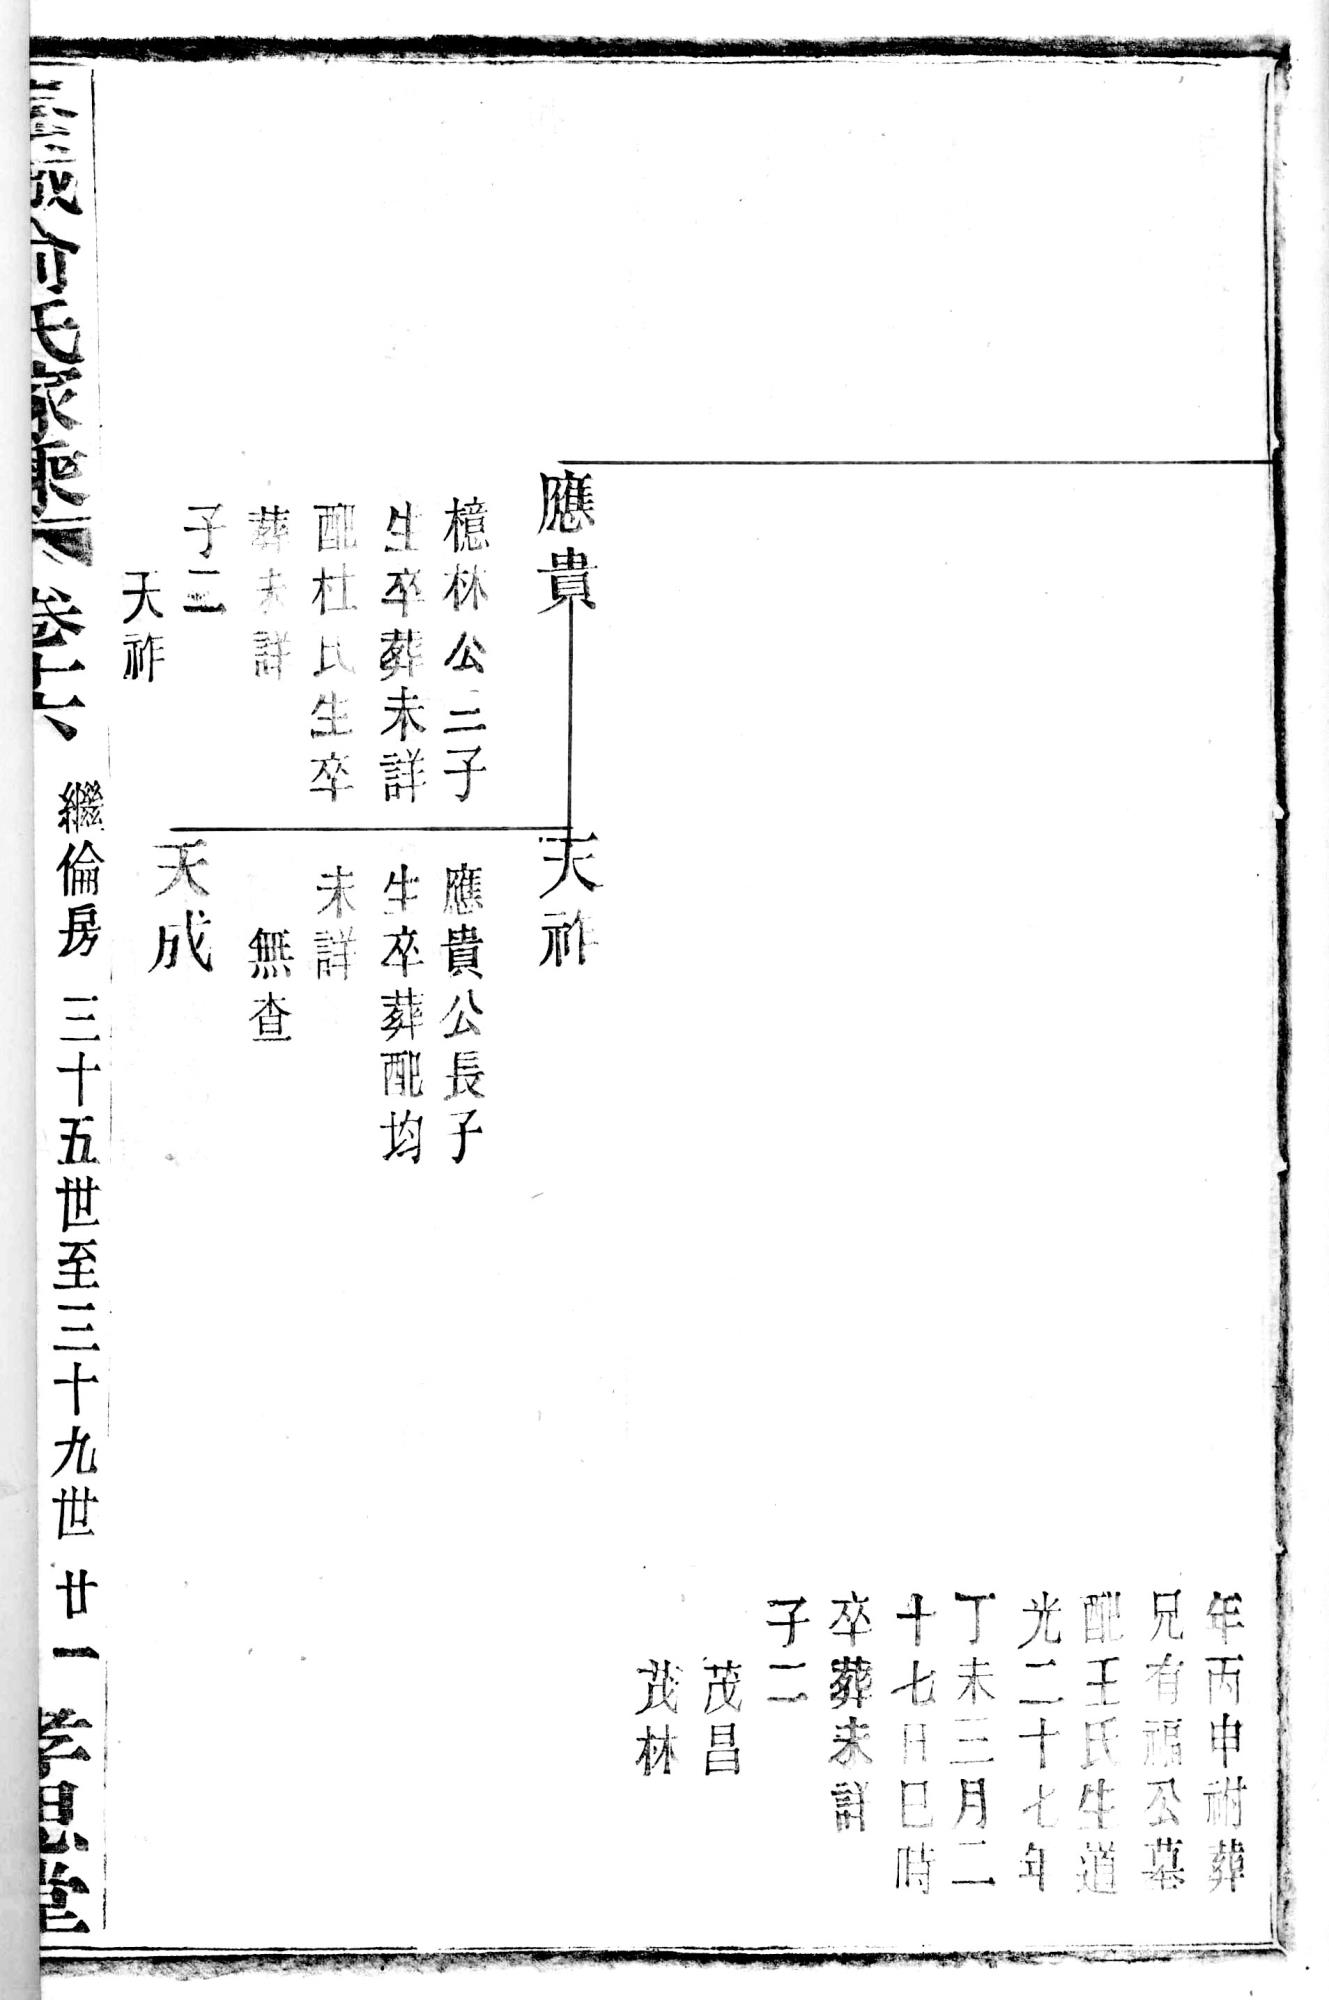 年丙申祔葬
兄有福公墓
配王氏生道
光二十七年
丁未三月二
十七日巳時
卒葬未詳
子二
茂昌
茂林
應貴
檍林公三子
生卒葬未詳
配杜氏生卒
葬未詳
子二
天祚
天祚
應貴公長子
生卒葬配均
未詳
無查
天成
俞氏家乘
卷十六
繼倫房 三十五世至三十九世 廿一
孝思堂